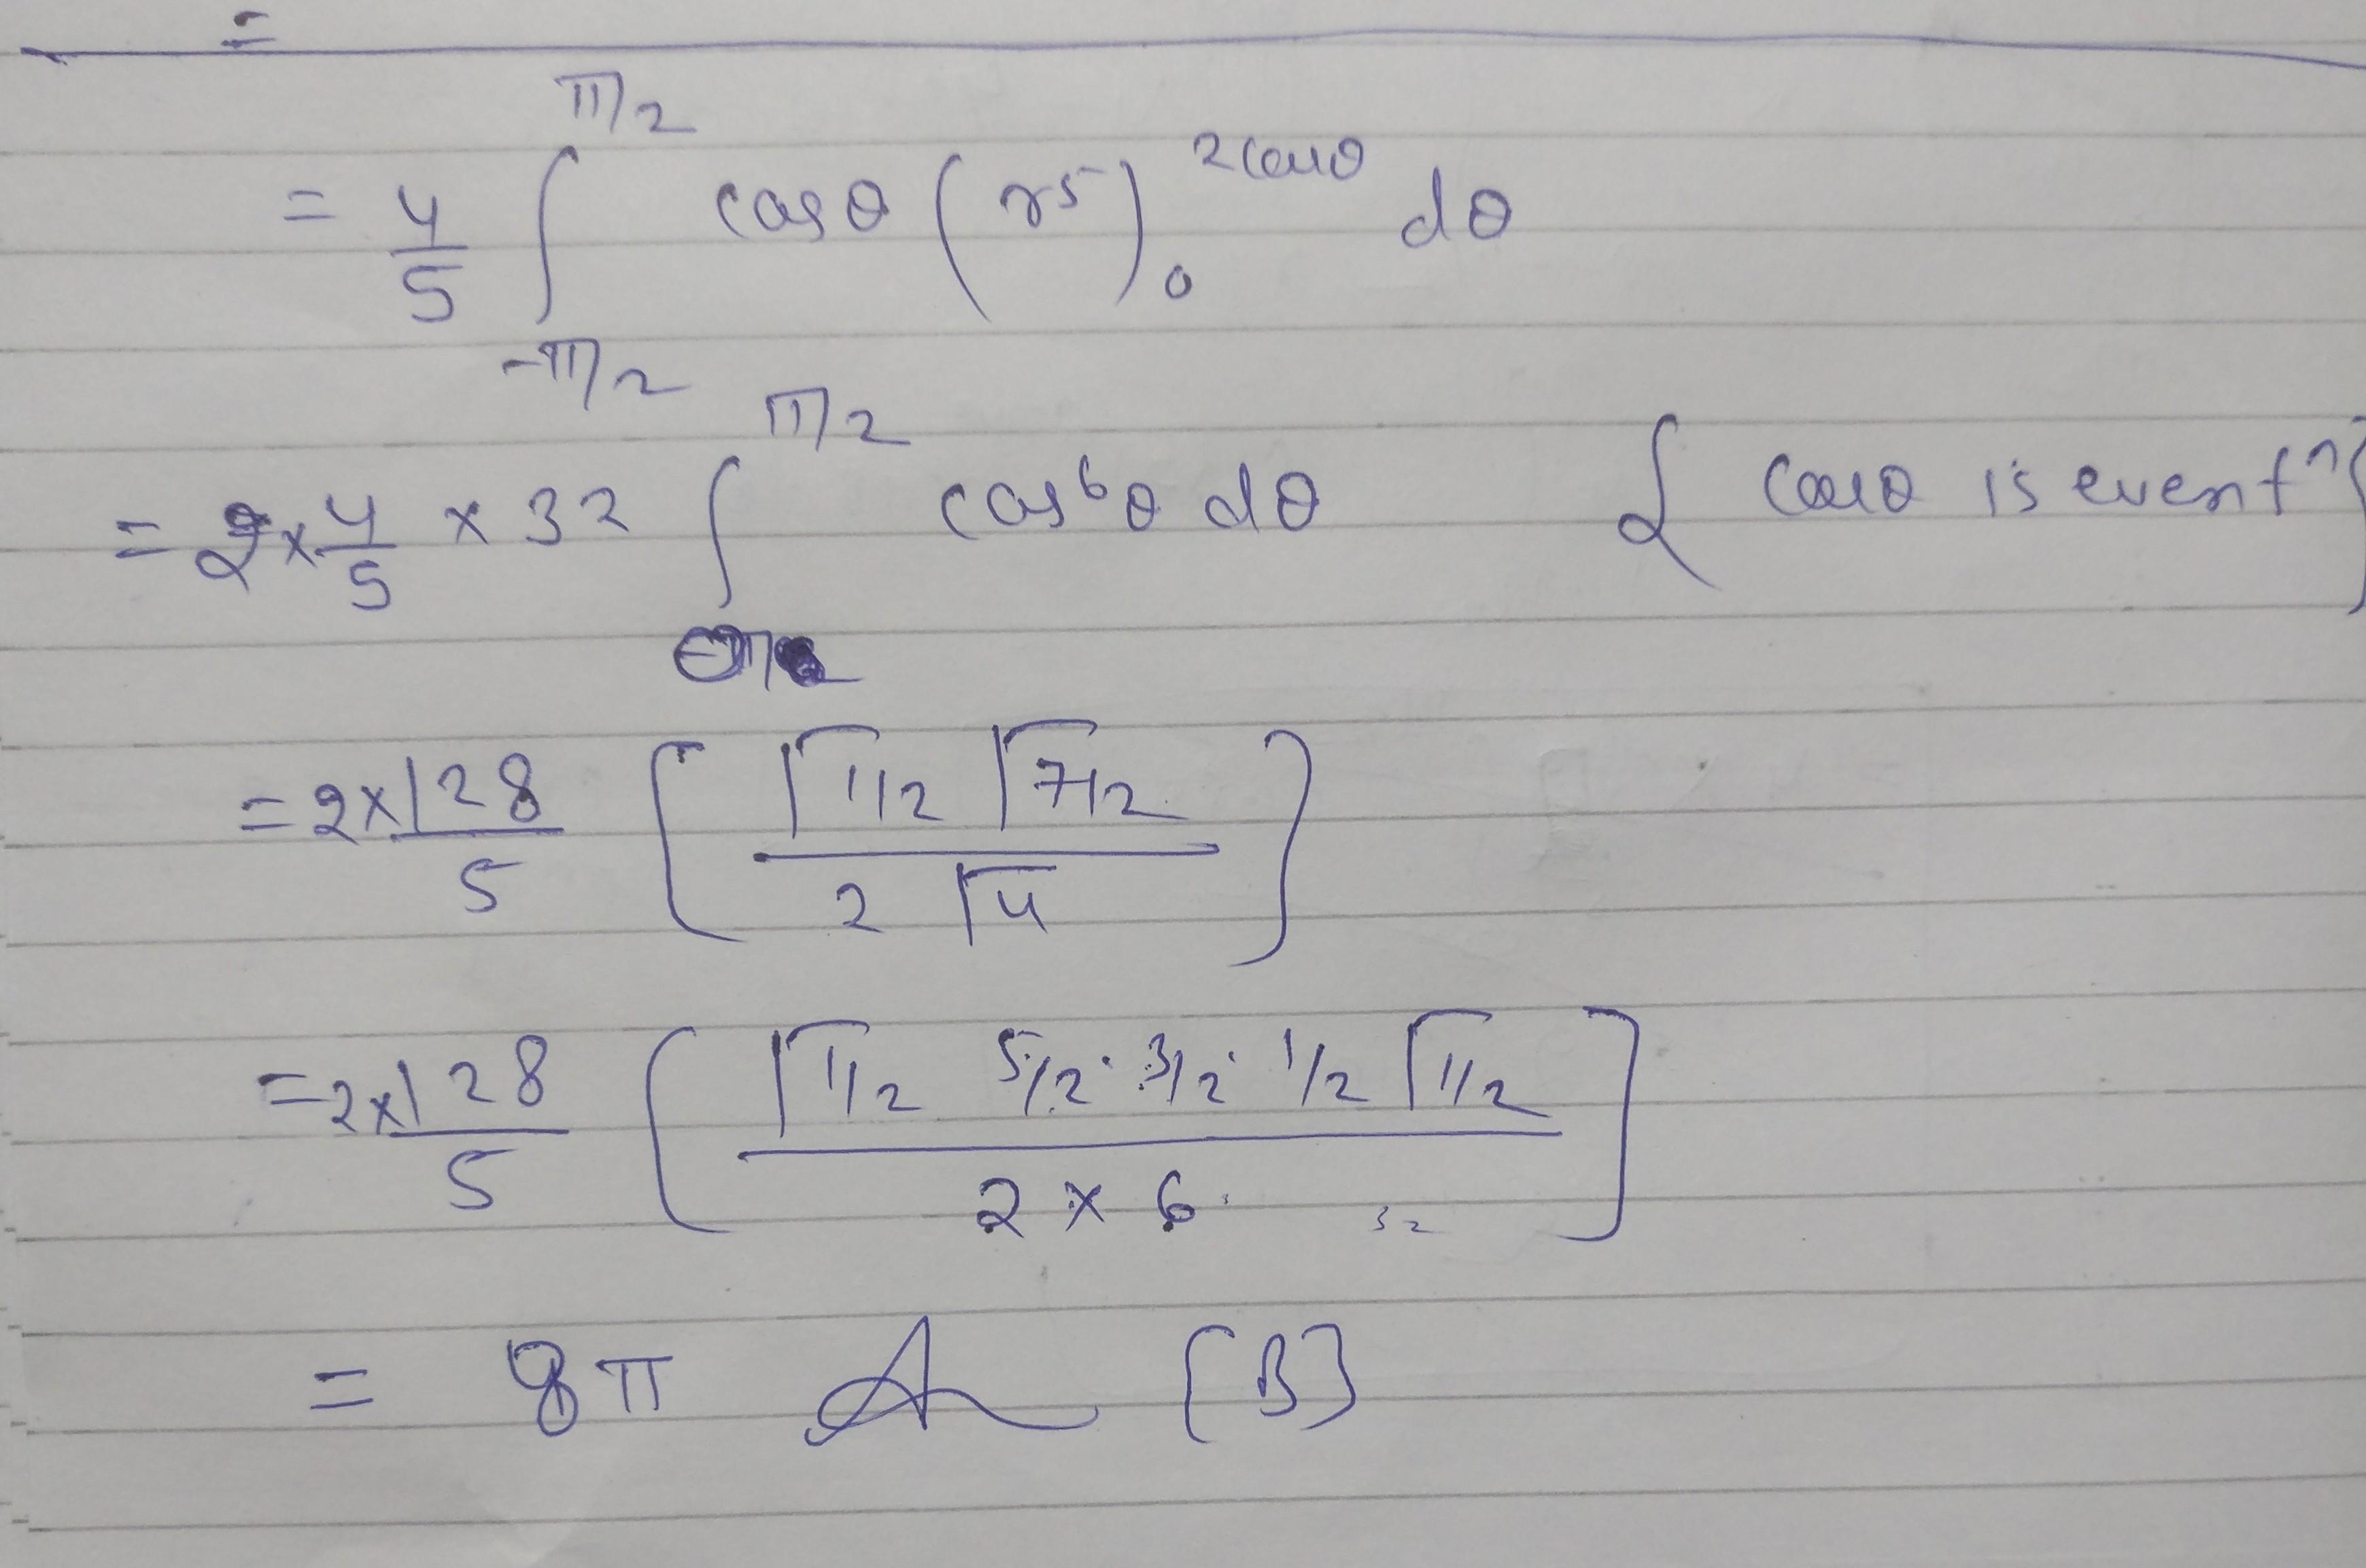 =
= 4/5 ∫_{-π/2}^{π/2} cosθ (r5)_0^{2cosθ} dθ
= 2 × 4/5 × 32 ∫_0^{π/2} cos⁶θ dθ { cosθ is even fn }
= 2 × 128/5 [ Γ1/2 Γ7/2 / 2 Γ4 ]
= 2 × 128/5 [ Γ1/2 5/2 · 3/2 · 1/2 Γ1/2 / 2 × 6 ]
= 8π A {B}